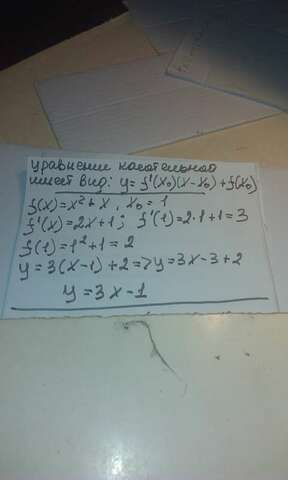 уравнение касательной
имеет вид: y = f'(x₀)(x-x₀)+f(x₀)
f(x)=x²+x, x₀=1
f'(x)=2x+1; f'(1)=2·1+1=3
f(1)=1²+1=2
y=3(x-1)+2=>y=3x-3+2
y=3x-1